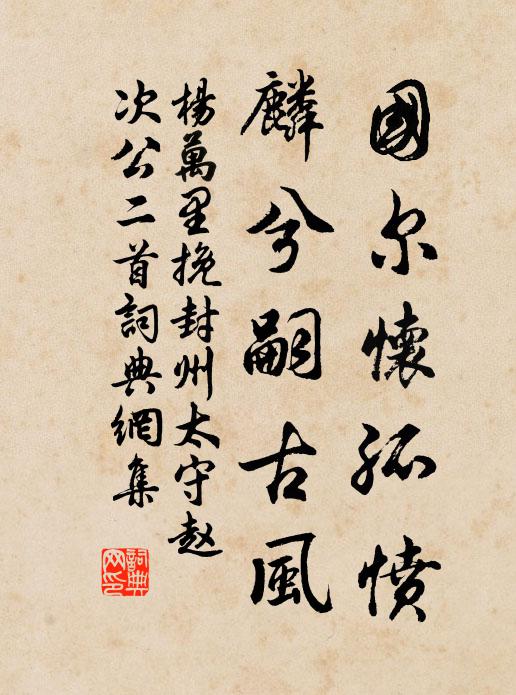 國尔懷孤憤
麟兮嗣古風
楊萬里挽封州太守赵
次公二首詞典網集
詞典
网印